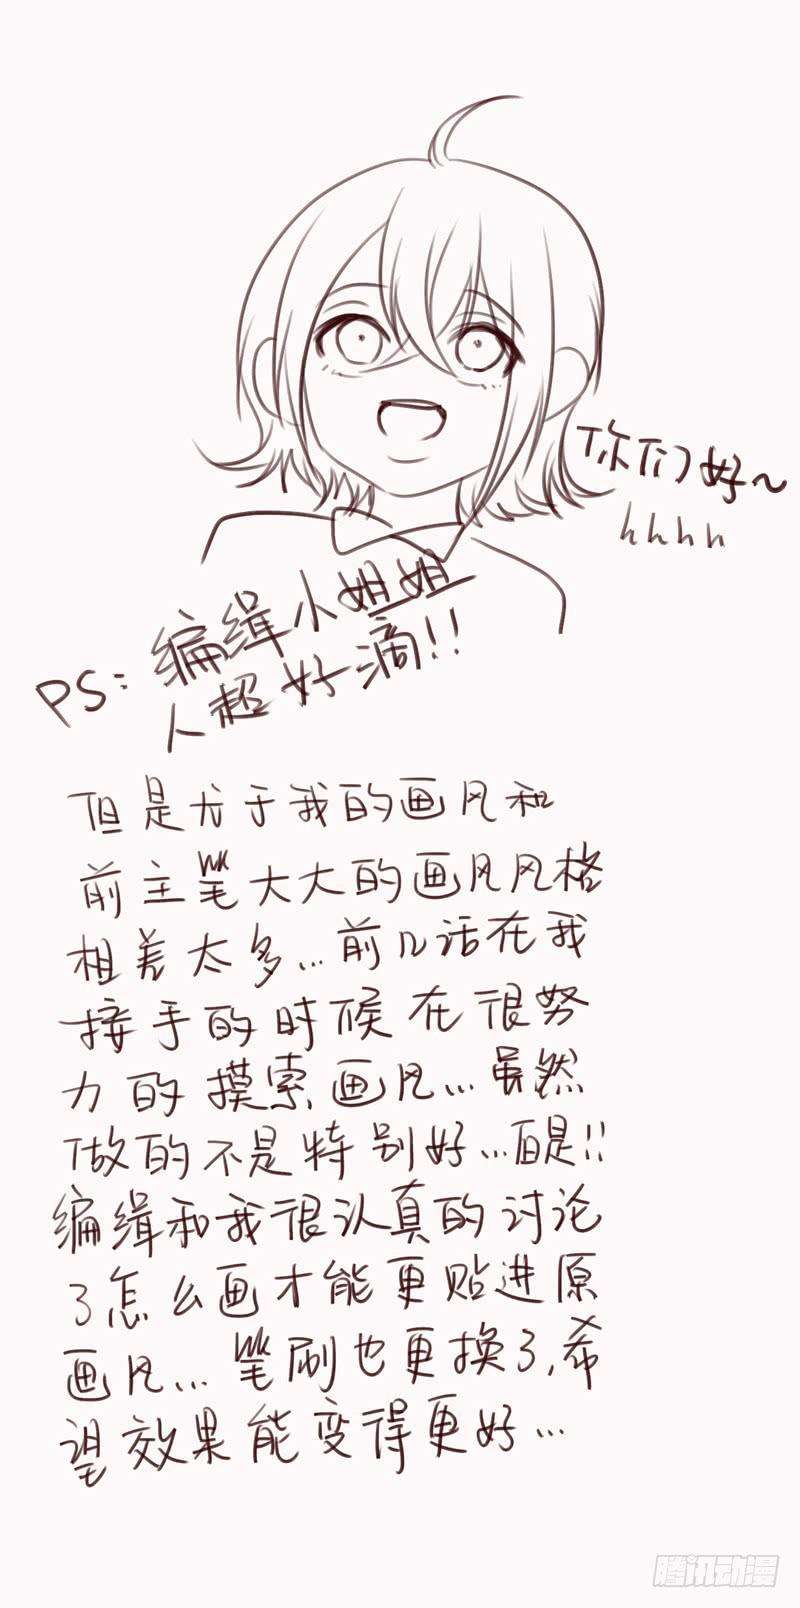 你们好~
hhhh
PS:编缉小姐姐
人超好滴!!
但是尤于我的画风和
前主笔大大的画风风格
相差太多...前几话在我
接手的时候在很努
力的摸索画风...虽然
做的不是特别好...但是!!
编缉和我很认真的讨论
了怎么画才能更贴进原
画风...笔刷也更换了,希
望效果能变得更好...
腾讯动漫